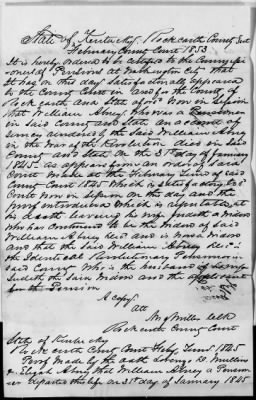 State of Kentucky, Rockcastle County Sct
February County Court 1853
It is hereby ordered to be Certified to the Commissi
oner of Pensions at Washington City That
It has on this day Satisfactorily appeared
to the County Court in and for the County of
Rockcastle and State aforesd Now in Session
that William Abney who was a Pensioner
in Said County and State on account of
Service rendered by the Said William Abney
in the War of the Revolution died in Said
County and State on the 31st day of January
1845 as appears from an order of Said
Court Made at the February Term of said
County Court 1845 Which is satisfactory to
Court now in Session on this day and the
proof introduced Which is
his death leaving his wife Judith a Widow
who has continued to be the Widow of Said
William Abney Decd and is now a Widow
and that the Said William Abney Decd is
the Identical Revolutionary Pensioner
in said County Who is the husband of
Judith the said Widow and the
for the Pension
A Copy
Att
Clk
Rockcastle County Court
State of Kentucky
Rockcastle County Court February Term 1845
Proof Made by the oath of D. Mullins
& Elijah Abney that William Abney a Pension
er Departed this life on 31st day of January 1845